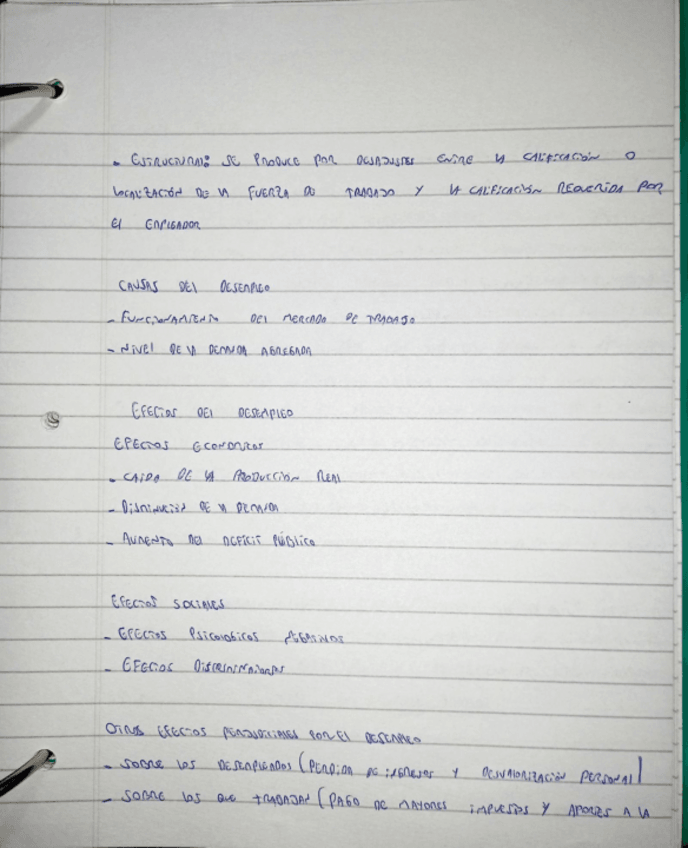 - ESTRUCTURAL: SE PRODUCE POR DESAJUSTES ENTRE LA CALIFICACIÓN O
LOCALIZACIÓN DE LA FUERZA DE TRABAJO Y LA CALIFICACIÓN REQUERIDA POR
EL EMPLEADOR
CAUSAS DEL DESEMPLEO
- FUNCIONAMIENTO DEL MERCADO DE TRABAJO
- NIVEL DE LA DEMANDA AGREGADA
EFECTOS DEL DESEMPLEO
EFECTOS ECONOMICOS
- CAIDA DE LA PRODUCCIÓN REAL
- DISMINUCIÓN DE LA DEMANDA
- AUMENTO DEL DEFICIT PÚBLICO
EFECTOS SOCIALES
- EFECTOS PSICOLOGICOS
- EFECTOS DISCRIMINATORIOS
OTROS EFECTOS PERJUDICIALES POR EL DESEMPLEO
- SOBRE LOS DESEMPLEADOS (PERDIDA DE INGRESOS Y DESVALORIZACIÓN PERSONAL)
- SOBRE LOS QUE TRABAJAN (PAGO DE MAYORES IMPUESTOS Y APORTES A LA